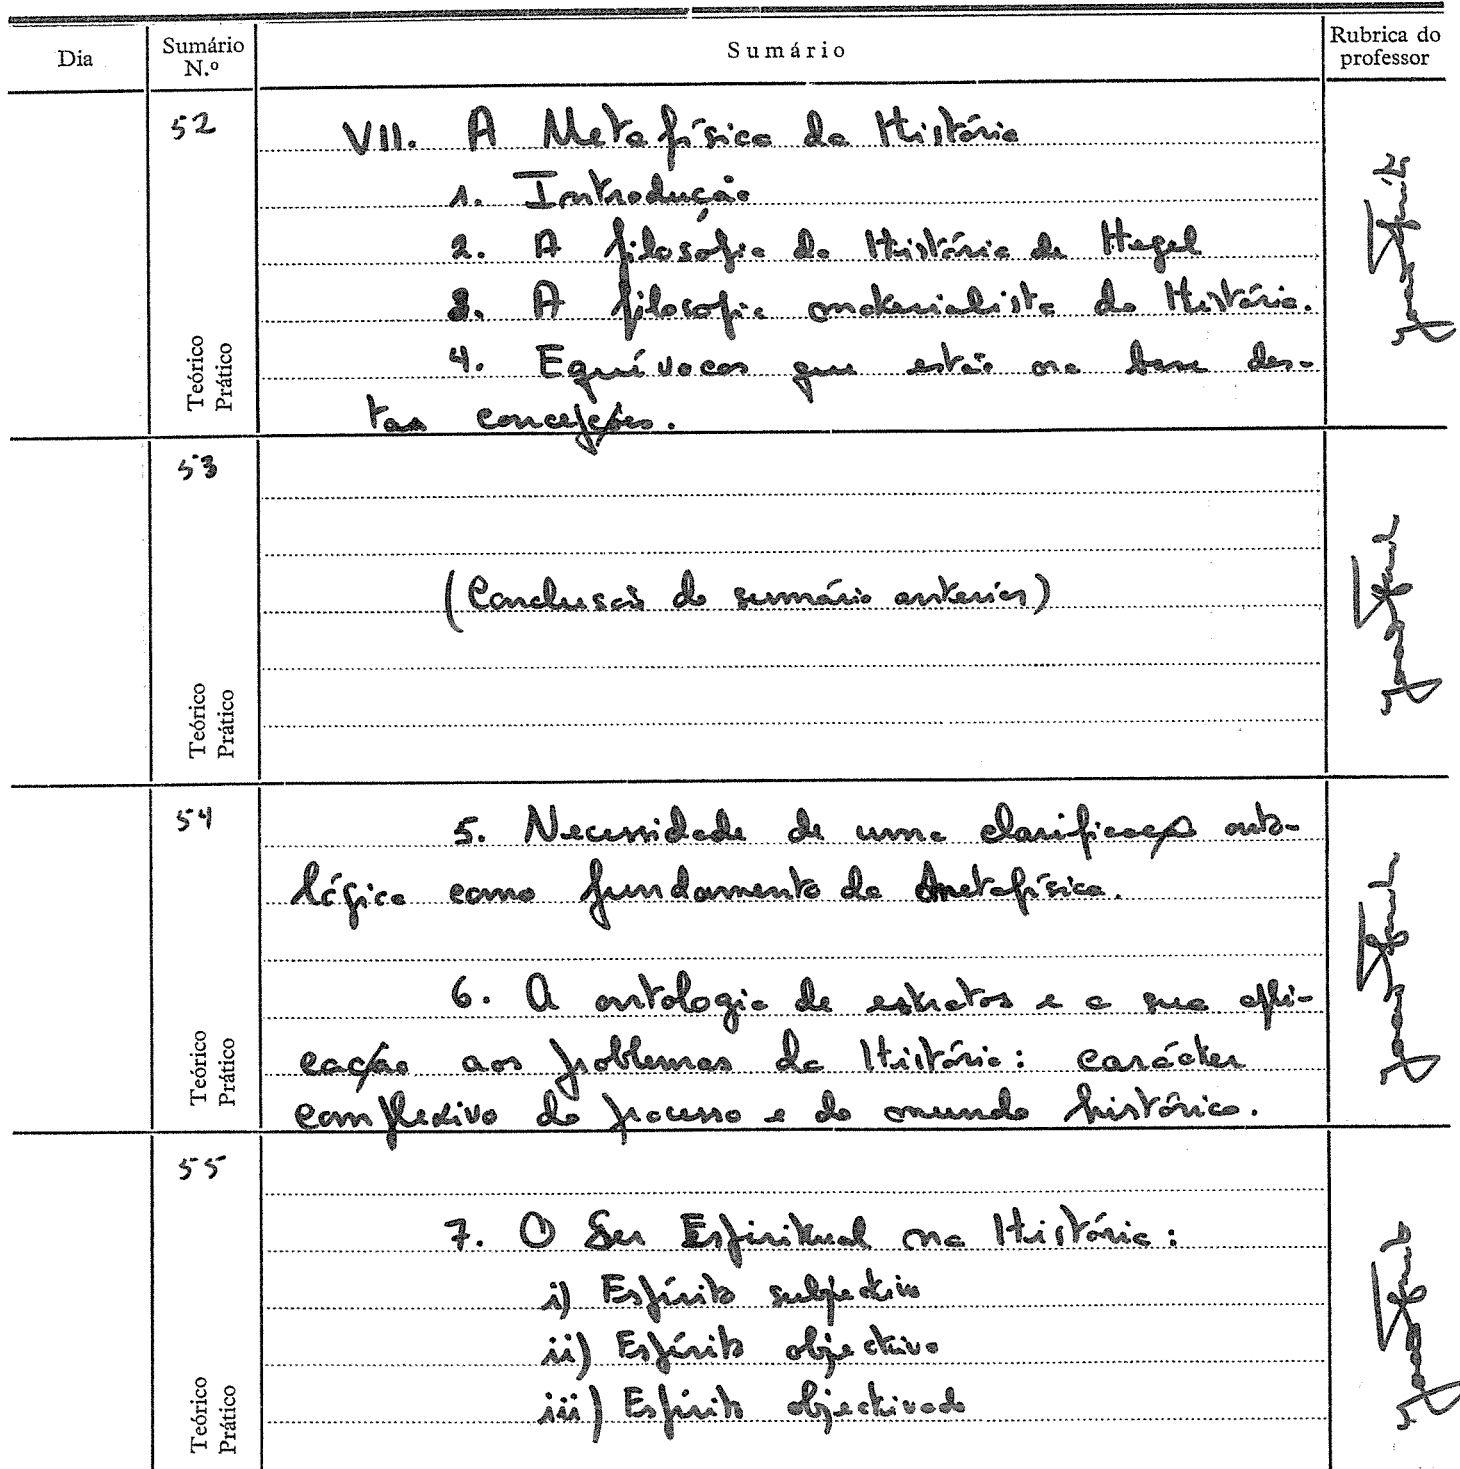 Dia
Sumário N.º
Sumário
Rubrica do professor
52
VII. A Metafísica da História
1. Introdução
2. A filosofia da História de Hegel
3. A filosofia materialista da História.
4. Equívocos que estão na base des-
tas concepções.
Teórico
Prático
53
(Conclusão do sumário anterior)
Teórico
Prático
54
5. Necessidade de uma clarificação onto-
lógica como fundamento da metafísica.
6. A ontologia de estratos e a sua apli-
cação aos problemas da História: carácter
complexivo do processo e do mundo histórico.
Teórico
Prático
55
7. O Ser Espiritual na História:
i) Espírito subjectivo
ii) Espírito objectivo
iii) Espírito objectivado
Teórico
Prático